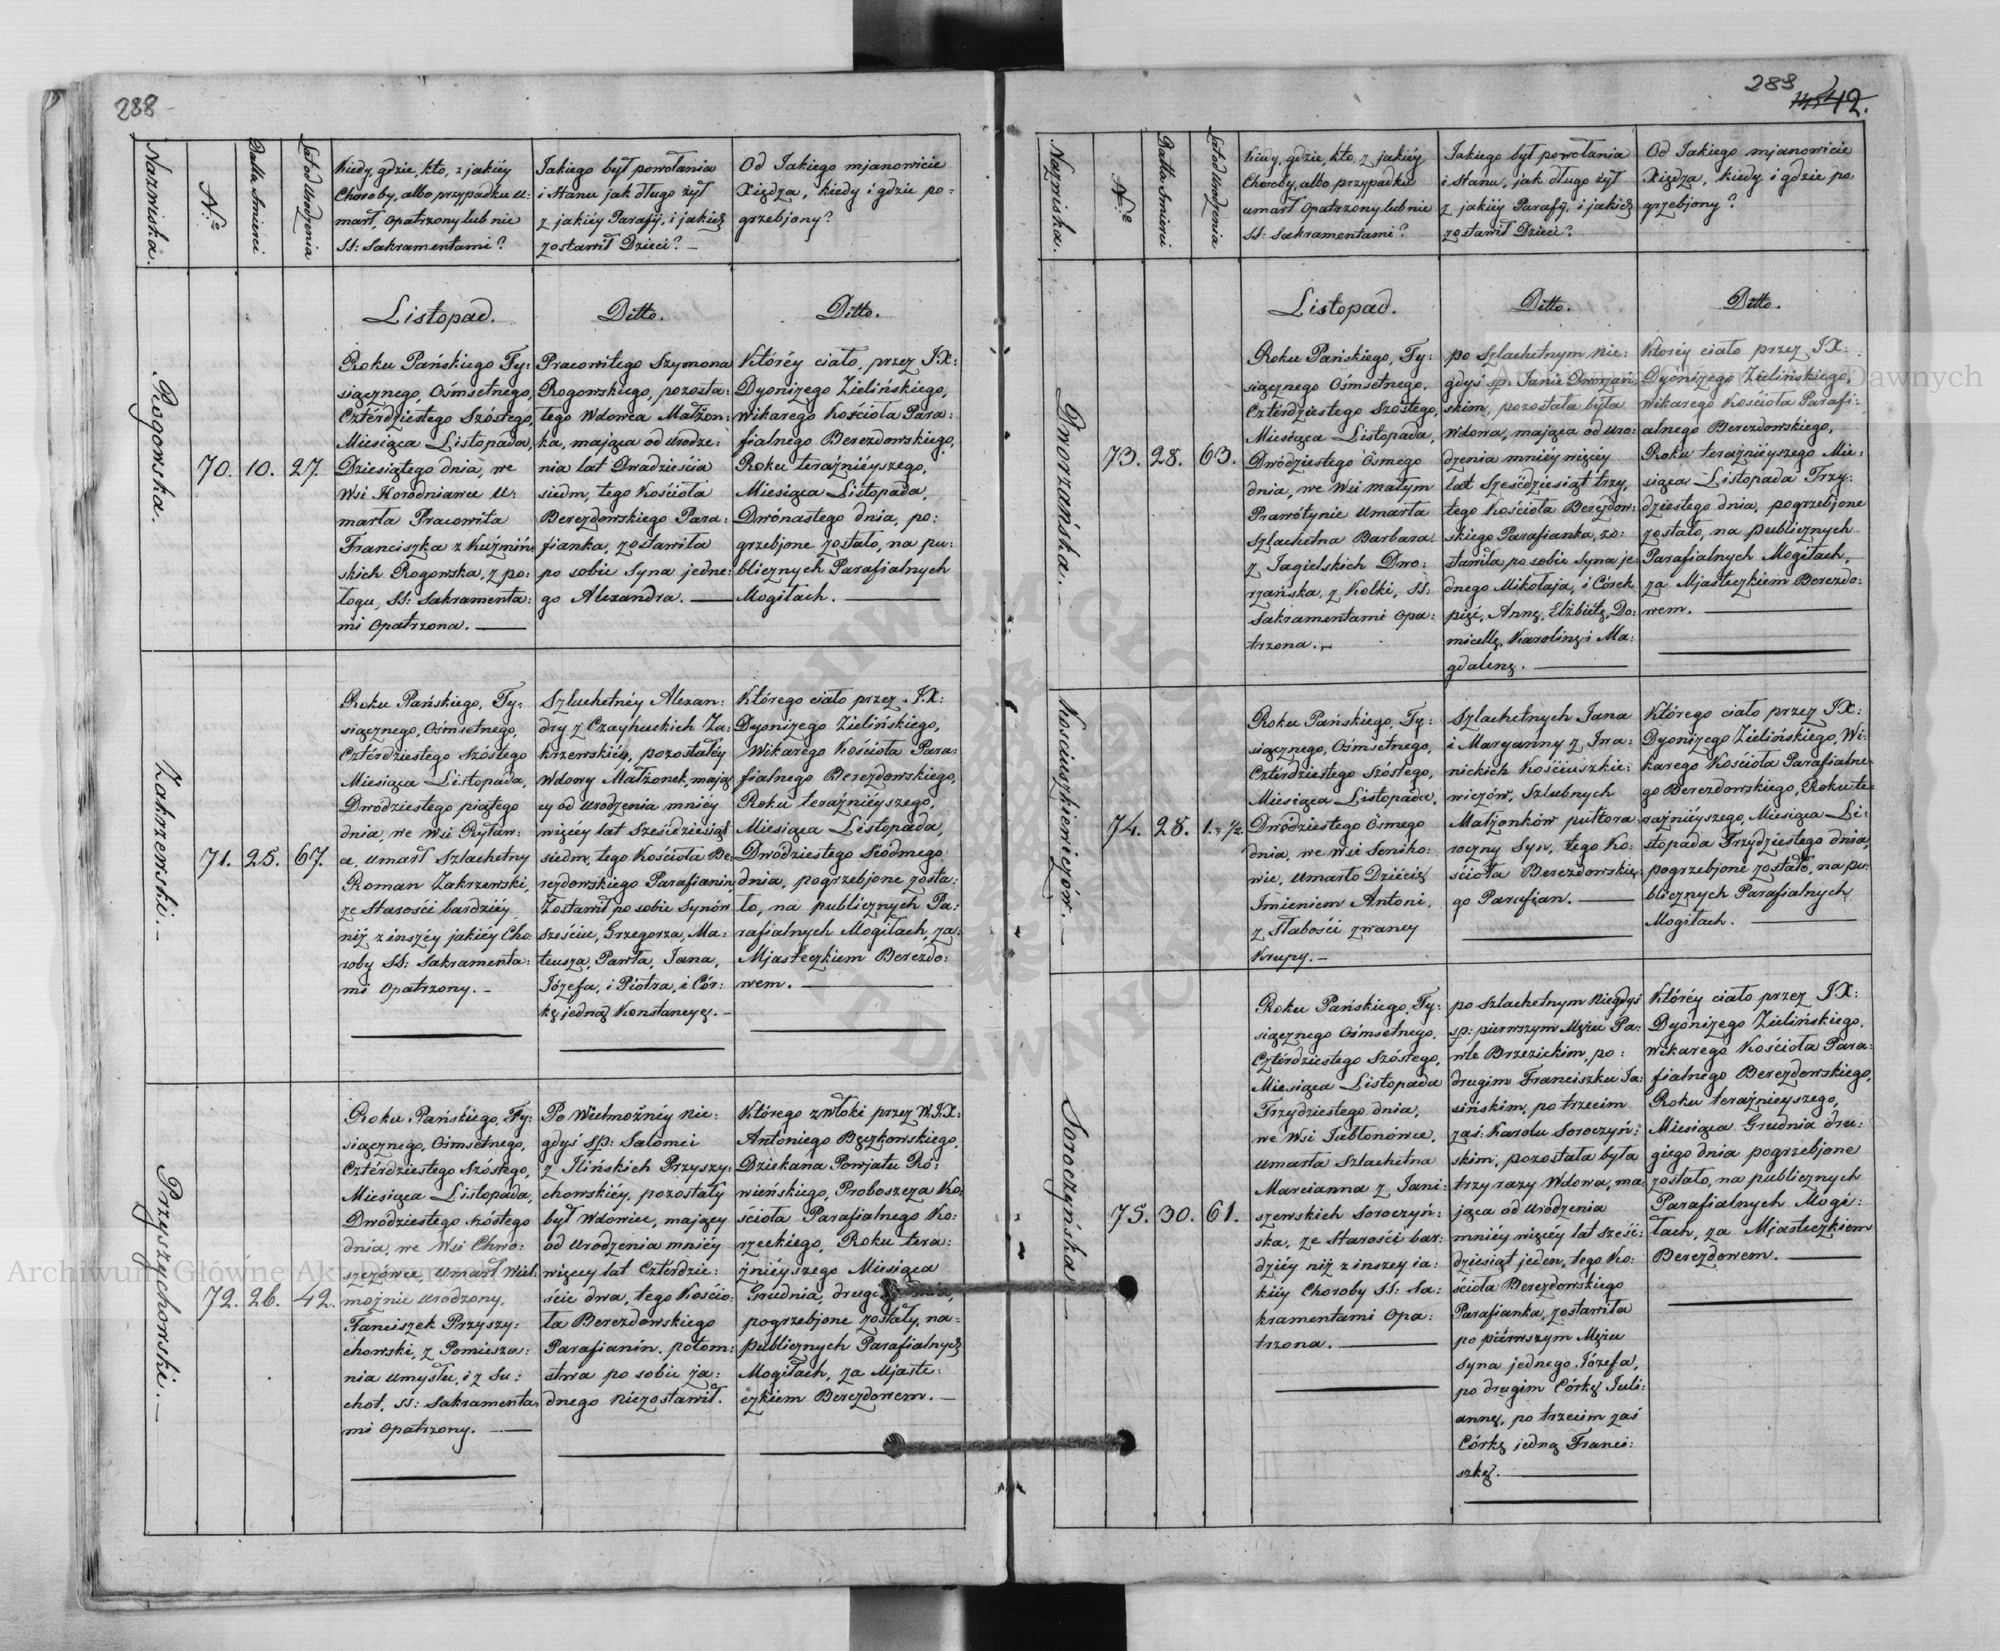 288
Nazwiska.
N.o
Datta Smierci
Lat od Urodzenia
Kiedy, gdzie, kto, z jakiéy
Choroby, albo przypadku u:
marł, opatrzony lub nie
SS: Sakramentami?
Jakiego był powołania
i Stanu jak długo żył
z jakiéy Parafij, i jakich
zostawił Dzieci? —
Od Jakiego mjanowicie
Xiędza, kiedy i gdzie po-
grzebjony?
Listopad.
Ditto.
Ditto.
Rogowska.
70. 10. 27.
Roku Pańskiego Ty:
siącznego, Ośmsetnego,
Cztérdziestego Szóstego,
Miesiąca Listopada,
Dziesiątego dnia, we
Wsi Horodniawce U:
marła Pracowita
Franciszka z Kuźmiń:
skich Rogowska, z po:
łogu, SS: Sakramenta:
mi Opatrzona. —
Pracowitego Szymona
Rogowskiego, pozosta:
łego Wdowca Małżon:
ka, mająca od Urodze:
nia lat Dwadzieścia
siedm, tego Kościoła
Berezdowskiego Para:
fianka, zostawiła
po sobie Syna jedne:
go Alexandra. —
Któréy ciało, przez J.X:
Dyonizego Zielińskiego,
Wikarego Kościoła Para:
fialnego Berezdowskiego,
Roku teraźniéyszego,
Miesiąca Listopada,
Dwónastego dnia, po:
grzebjone zostało, na pu:
blicznych Parafialnych
Mogiłach. —
Zakrzewski. —
71. 25. 67.
Roku Pańskiego, Ty:
siącznego, Ośmsetnego,
Cztérdziestego Szóstego
Miesiąca Listopada,
Dwódziestego piątego
dnia, we Wsi
umarł Szlachetny
Roman Zakrzewski,
ze Starości bardziéy
niż z inszéy jakiéy Cho:
roby SS: Sakramenta:
mi Opatrzony. —
Szlachetnéy Alexan:
dry z Za:
krzewskiéy, pozostałéy
Wdowy Małżonek, mają:
cy od Urodzenia mniéy
więcéy lat Sześcdziesiąt
siedm, tego Kościoła Be:
rezdowskiego Parafianin,
Zostawił po sobie Synów
sześciu, Grzegorza, Ma:
teusza, Pawła, Jana,
Józefa, i Piotra, i Cór:
kę jedną Konstancyę. —
Którego ciało przez J.X:
Dyonizego Zielińskiego,
Wikarego Kościoła Para:
fialnego Berezdowskiego,
Roku teraźniéyszego,
Miesiąca Listopada,
Dwódziestego Siódmego
dnia, pogrzebjone zosta:
ło, na publicznych Pa:
rafialnych Mogiłach, za
Mjasteczkiem Berezdo:
wem. —
Przyszychowski. —
72. 26. 42.
Roku Pańskiego, Ty:
siącznego, Ośmsetnego,
Cztérdziestego Szóstego,
Miesiąca Listopada,
Dwódziestego szóstego
dnia, we Wsi Chwo:
szczówce, Umarł Wiel:
możnie Urodzony,
Franciszek Przyszy:
chowski, z Pomiesza:
nia Umysłu, i z Su:
chot, SS: Sakramenta:
mi Opatrzony. —
Po Wielmożnéy nie:
gdyś śp: Salomei
z Ilińskich Przyszy:
chowskiéy, pozostały
był Wdowiec, mający
od Urodzenia mniéy
więcey lat Cztérdzie:
ście dwa, tego Kościo:
ła Berezdowskiego
Parafianin, potom:
stwa po sobie ża:
dnego niezostawił.
Którego zwłoki przez W.J.X:
Antoniego Bęczkowskiego,
Dziekana Powjatu Ró:
wieńskiego, Proboszcza Ko:
ścioła Parafialnego Ko:
rzeckiego, Roku tera:
źniéyszego Miesiąca
Grudnia, drugiego dnia,
pogrzebjone zostały, na
publicznych Parafialnych
Mogiłach, za Mjaste:
czkiem Berezdowem. —
289
42.
Nazwiska.
N.o
Datta Smierci
Lat od Urodzenia
Kiedy, gdzie, kto, z jakiéy
Choroby, albo przypadku
umarł opatrzony lub nie
SS: Sakramentami?
Jakiego był powołania
i Stanu, jak długo żył
z jakiéy Parafij, i jakich
zostawił Dzieci?
Od Jakiego mjanowicie
Xiędza, kiedy i gdzie po:
grzebjony?
Listopad.
Ditto.
Ditto.
Dworzańska. —
73. 28. 63.
Roku Pańskiego, Ty:
siącznego Ośmsetnego,
Cztérdziestego Szóstego,
Miesiąca Listopada,
Dwódziestego Ósmego
dnia, we Wsi małym
Prawótynie Umarła
Szlachetna Barbara
z Jagielskich Dwo:
rzańska, z Kolki, SS:
Sakramentami Opa:
trzona. —
po Szlachetnym nie:
gdyś śp: Janie Dworzań:
skim, pozostała była
Wdowa, mająca od Uro:
dzenia mniéy więcey
lat Sześćdziesiąt trzy,
tego Kościoła Berezdow:
skiego Parafianka, zo:
stawiła, po sobie Syna je:
dnego Mikołaja, i Córek
pięć, Annę, Elżbietę, Do:
micellę, Karolinę i Ma:
gdalenę. —
Któréy ciało przez J.X:
Dyonizego Zielińskiego,
Wikarego Kościoła Parafi:
alnego Berezdowskiego,
Roku teraźniéyszego Mie:
siąca Listopada Trzy:
dziestego dnia, pogrzebjone
zostało, na publicznych
Parafialnych Mogiłach,
za Mjasteczkiem Berezdo:
wem. —
Kosciuszkiewiczów. —
74. 28. 1. i 1/2.
Roku Pańskiego, Ty:
siącznego, Ośmsetnego,
Cztérdziestego Szóstego,
Miesiąca Listopada,
Dwódziestego Ósmego
dnia, we Wsi Seniko:
wie, Umarło Dziécię
Imieniem Antoni,
z Słabości zwaney
Krupy. —
Szlachetnych Jana
i Maryanny z Ira:
nickich Kościuszkie:
wiczów, Szlubnych
Małżonków półtora
roczny Syn, tego Ko:
ścioła Berezdowskie:
go Parafian. —
Którego ciało przez J.X:
Dyonizego Zielińskiego, Wi:
karego Kościoła Parafialne:
go Berezdowskiego, Roku te:
raźniéyszego, Miesiąca Li:
stopada Trzydziestego dnia,
pogrzebjone zostało, na pu:
blicznych Parafialnych
Mogiłach. —
Soroczyńska —
75. 30. 61.
Roku Pańskiego, Ty:
siącznego Ośmsetnego,
Cztérdziestego Szóstego,
Miesiąca Listopada
Trzydziestego dnia,
we Wsi Jabłonówce,
Umarła Szlachetna
Marcianna z Jani:
szewskich Soroczyń:
ska, ze Starości bar:
dziéy niż z inszey ia:
kiéy Choroby SS: Sa:
kramentami Opa:
trzona. —
po Szlachetnym Niegdyś
śp: pierwszym Mężu Pa:
wle Brzezickim, po:
drugim Franciszku Ja:
sińskim, po trzecim
zaś: Karolu Soroczyń:
skim, pozostała była
trzy razy Wdowa, ma:
jąca od Urodzenia
mniéy więcéy lat sześć:
dziesiąt jeden, tego Ko:
ścioła Berezdowskiego
Parafianka, zostawiła
po piérwszym Mężu
Syna jednego Józefa,
po drugim Córkę Juli:
annę, po trzecim zaś
Córkę jedną Franci:
szkę. —
Któréy ciało przez J.X:
Dyonizego Zielińskiego,
Wikarego Kościoła Para:
fialnego Berezdowskiego,
Roku teraźnieyszego,
Miesiąca Grudnia dru:
giego dnia pogrzebjone
zostało, na publicznych
Parafialnych Mogi:
łach, za Mjasteczkiem
Berezdowem. —
Archiwum Główne Akt Dawnych
Archiwum Główne Akt Dawnych